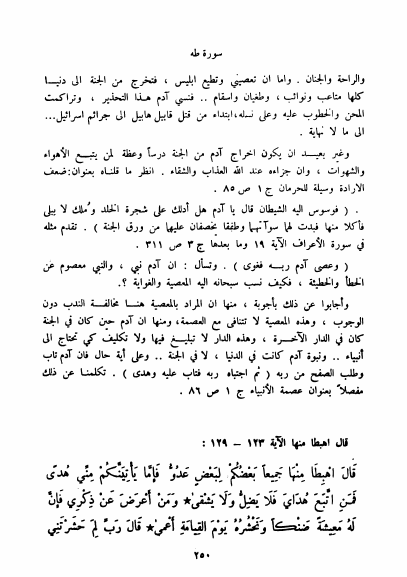 سورة طه
والراحة والجنان . واما ان تعصيني وتطيع ابليس ، فتخرج من الجنة الى دنيا
كلها متاعب ونوائب ، وطغيان واسقام .. فنسي آدم هذا التحذير ، وتراكمت
المحن والخطوب عليه وعلى نسله ، ابتداء من قتل قابيل هابيل الى جرائم اسرائيل...
الى ما لا نهاية .
وغير بعيد ان يكون اخراج آدم من الجنة درساً وعظة لمن يتبع الأهواء
والشهوات ، وان جزاءه عند الله العذاب والشقاء . انظر ما قلناه بعنوان : ضعف
الارادة وسيلة للحرمان ج ١ ص ٨٥ .
. ( فوسوس اليه الشيطان قال يا آدم هل أدلك على شجرة الخلد وملك لا يبلى
فأكلا منها فبدت لهما سوآتهما وطفقا يخصفان عليهما من ورق الجنة ) . تقدم مثله
في سورة الأعراف الآية ١٩ وما بعدها ج ٣ ص ٣١١ .
( وعصى آدم ربه فغوى ) . وتسأل : ان آدم نبي ، والنبي معصوم عن
الخطأ والخطيئة ، فكيف نسب سبحانه اليه المعصية والغواية ؟.
وأجابوا عن ذلك بأجوبة ، منها ان المراد بالمعصية هنا مخالفة الندب دون
الوجوب ، وهذه المعصية لا تتنافى مع العصمة ، ومنها ان آدم حين كان في الجنة
كان في الدار الآخرة ، وهذه الدار لا تبليغ فيها ولا تكليف كي تحتاج الى
أنبياء .. ونبوة آدم كانت في الدنيا ، لا في الجنة .. وعلى أية حال فان آدم تاب
وطلب الصفح من ربه ( ثم اجتباه ربه فتاب عليه وهدى ) . تكلمنا عن ذلك
مفصلاً بعنوان عصمة الأنبياء ج ١ ص ٨٦ .
قال اهبطا منها الآية ١٢٣ – ١٢٩ :
قَالَ اهْبِطَا مِنْهَا جَمِيعاً بَعْضُكُمْ لِبَعْضٍ عَدُوٌّ فَإِمَّا يَأْتِيَنَّكُمْ مِنِّي هُدًى
فَمَنِ اتَّبَعَ هُدَايَ فَلَا يَضِلُّ وَلَا يَشْقَى ★ وَمَنْ أَعْرَضَ عَنْ ذِكْرِي فَإِنَّ
لَهُ مَعِيشَةً ضَنْكاً وَنَحْشُرُهُ يَوْمَ الْقِيَامَةِ أَعْمَى ★ قَالَ رَبِّ لِمَ حَشَرْتَنِي
٢٥٠